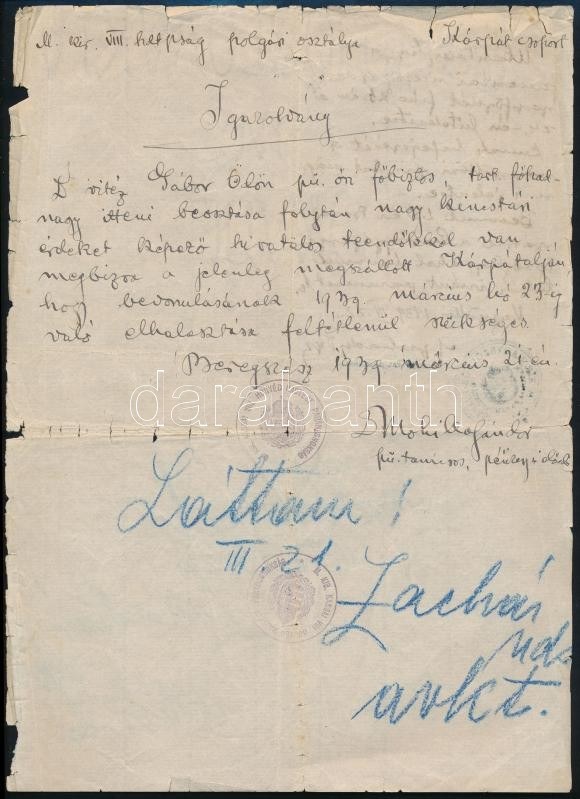 M. kir. VIII. hdtpság polgári osztálya Kárpát csoport
Igazolvány
D vitéz Gábor Ödön pü. őri főbiztos, tart. főhad-
nagy itteni beosztása folytán nagy kincstári
érdeket képező hivatalos teendőkkel van
megbízva a jelenleg megszállott Kárpátalján
hogy bevonulásának 1939. március hó 23-ig
való elhalasztása feltétlenül szükséges.
Beregszász 1939 március 21-én.
darabanth
pü. tanácsos,
Láttam!
III. 21.